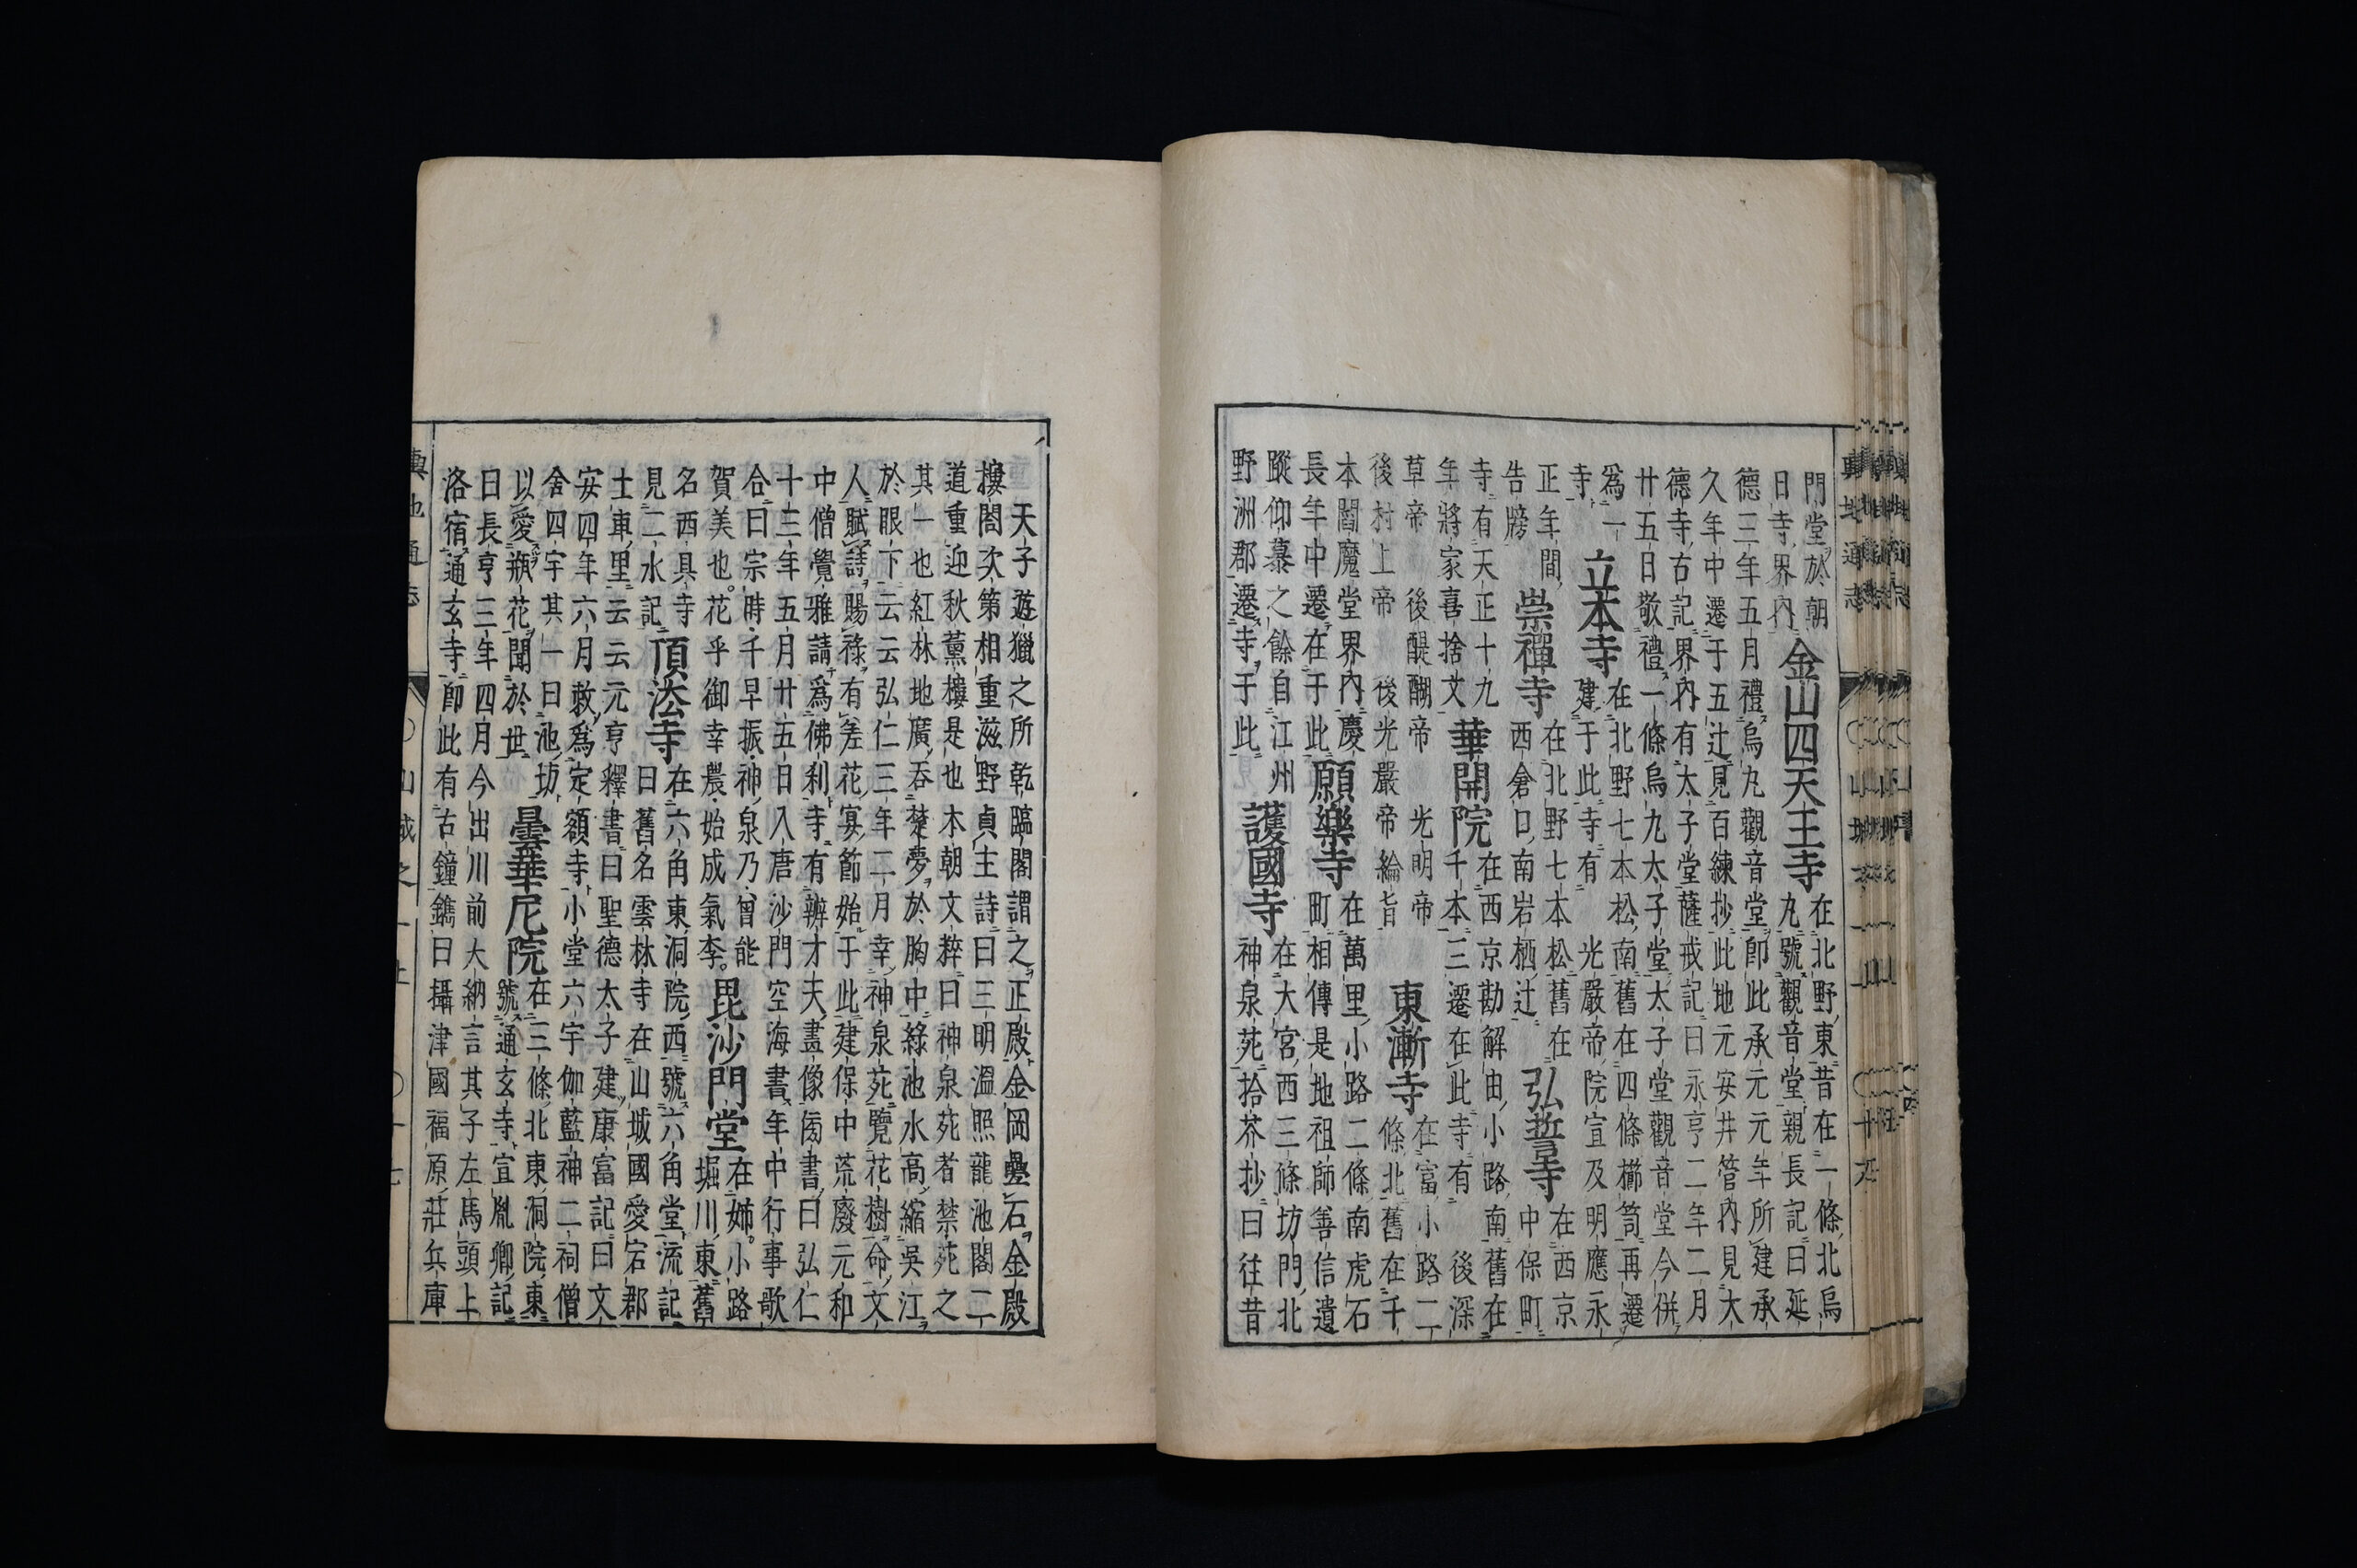 門堂於朝
日寺界內
金山四天王寺
在北野東昔在一條北烏
丸號觀音堂親長記曰延
德三年五月禮烏丸觀音堂即此承元元年所建承
久年中遷于五辻見百練抄此地元安井管內見大
德寺古記界內有太子堂薩戒記曰永亨二年二月
廿五日敬禮一條烏丸太子堂太子堂觀音堂今併
爲一
寺
立本寺
在北野七本松南舊在四條櫛笥再遷
建于此寺有 光嚴帝院宣及明應永
正年間
告牓
崇禪寺
在北野七本松舊在
西倉口南岩栖辻
弘誓寺
在西京
中保町
寺有天正十九
年將家喜捨文
華開院
在西京勘解由小路南舊在
千本三遷在此寺有 後深
草帝 後醍醐帝 光明帝
後村上帝 後光嚴帝綸旨
東漸寺
在富小路二
條北舊在千
本閻魔堂界內慶
長年中遷在于此
願樂寺
在萬里小路二條南虎石
町相傳是地祖師善信遺
蹤仰慕之餘自江州
野洲郡遷寺于此
護國寺
在大宮西三條坊門北
神泉苑拾芥抄曰往昔
天子遊獵之所乾臨閣謂之正殿金岡疊石金殿
樓閣次第相重滋野貞主詩曰三明溫照龍池閣二
道重迎秋薫樓是也本朝文粹曰神泉苑者禁苑之
其一也紅林地廣呑楚夢於胸中綠池水高縮吳江
於眼下云云弘仁三年二月幸神泉苑覽花樹命文
人賦詩賜祿有差花宴節始于此建保中荒廢元和
中僧覺雅請爲佛刹寺有辨才天畫像傍書曰弘仁
十三年五月廿五日入唐沙門空海書年中行事歌
合曰宗時千早振神泉乃曽能
賀美也花乎御幸農始成氣李
毘沙門堂
在姉小路
堀川東舊
名西具寺
見二水記
頂法寺
在六角東洞院西號六角堂流記
曰舊名雲林寺在山城國愛宕郡
士車里云云元亨釋書曰聖德太子建康富記曰文
安四年六月敕爲定額寺小堂六宇伽藍神二祠僧
舍四宇其一曰池坊
以愛瓶花聞於世
曇華尼院
在三條北東洞院東
號通玄寺宣胤卿記
曰長亨三年四月今出川前大納言其子左馬頭上
洛宿通玄寺即此有古鐘鐫曰攝津國福原莊兵庫